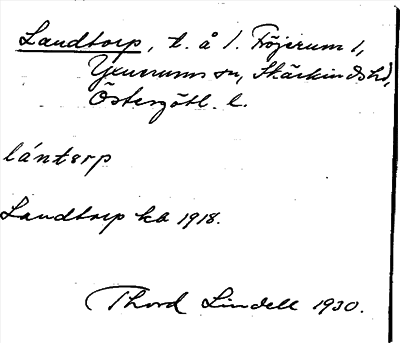 Landtorp, t. å 1. Fröjerum 1,
Yxnerums sn, Skärkinds hd,
Östergötl. l.
lántorp
Landtorp ka 1918.
Thord Lindell 1930.